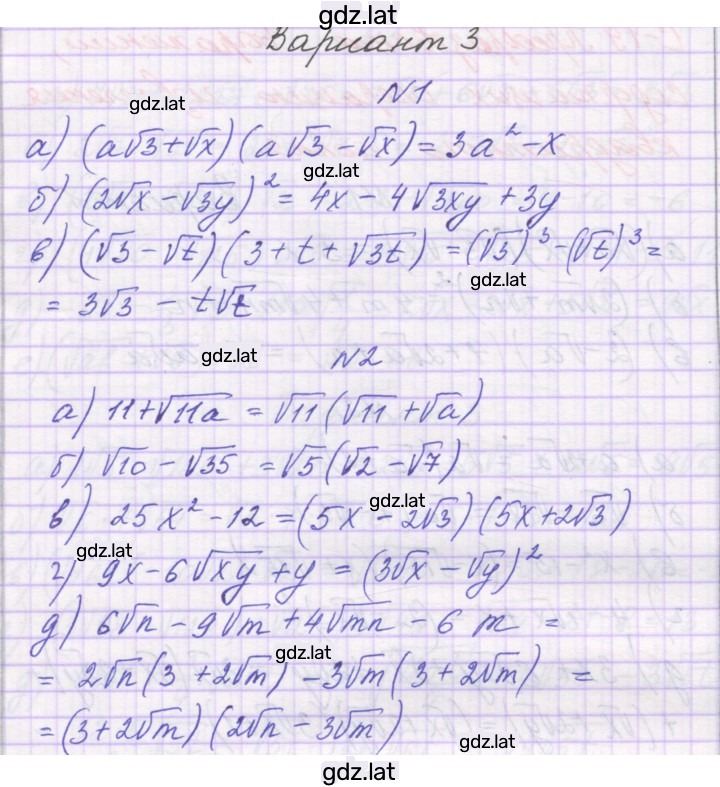 gdz.lat
Вариант 3
N1
gdz.lat
а) (a√3+√x)(a√3-√x)=3a²-x
gdz.lat
б) (2√x-√3y)²=4x-4√3xy+3y
в) (√3-√t)(3+t+√3t)=(√3)³-(√t)³=
gdz.lat
= 3√3 - t√t
gdz.lat
N2
а) 11+√11a = √11(√11+√a)
б) √10-√35 =√5(√2-√7)
gdz.lat
в) 25x²-12=(5x-2√3)(5x+2√3)
gdz.lat
г) 9x-6√xy+y = (3√x-√y)²
д) 6√n-9√m+4√mn-6m =
gdz.lat
= 2√n(3+2√m)-3√m(3+2√m) =
=(3+2√m)(2√n-3√m)
gdz.lat
gdz.lat